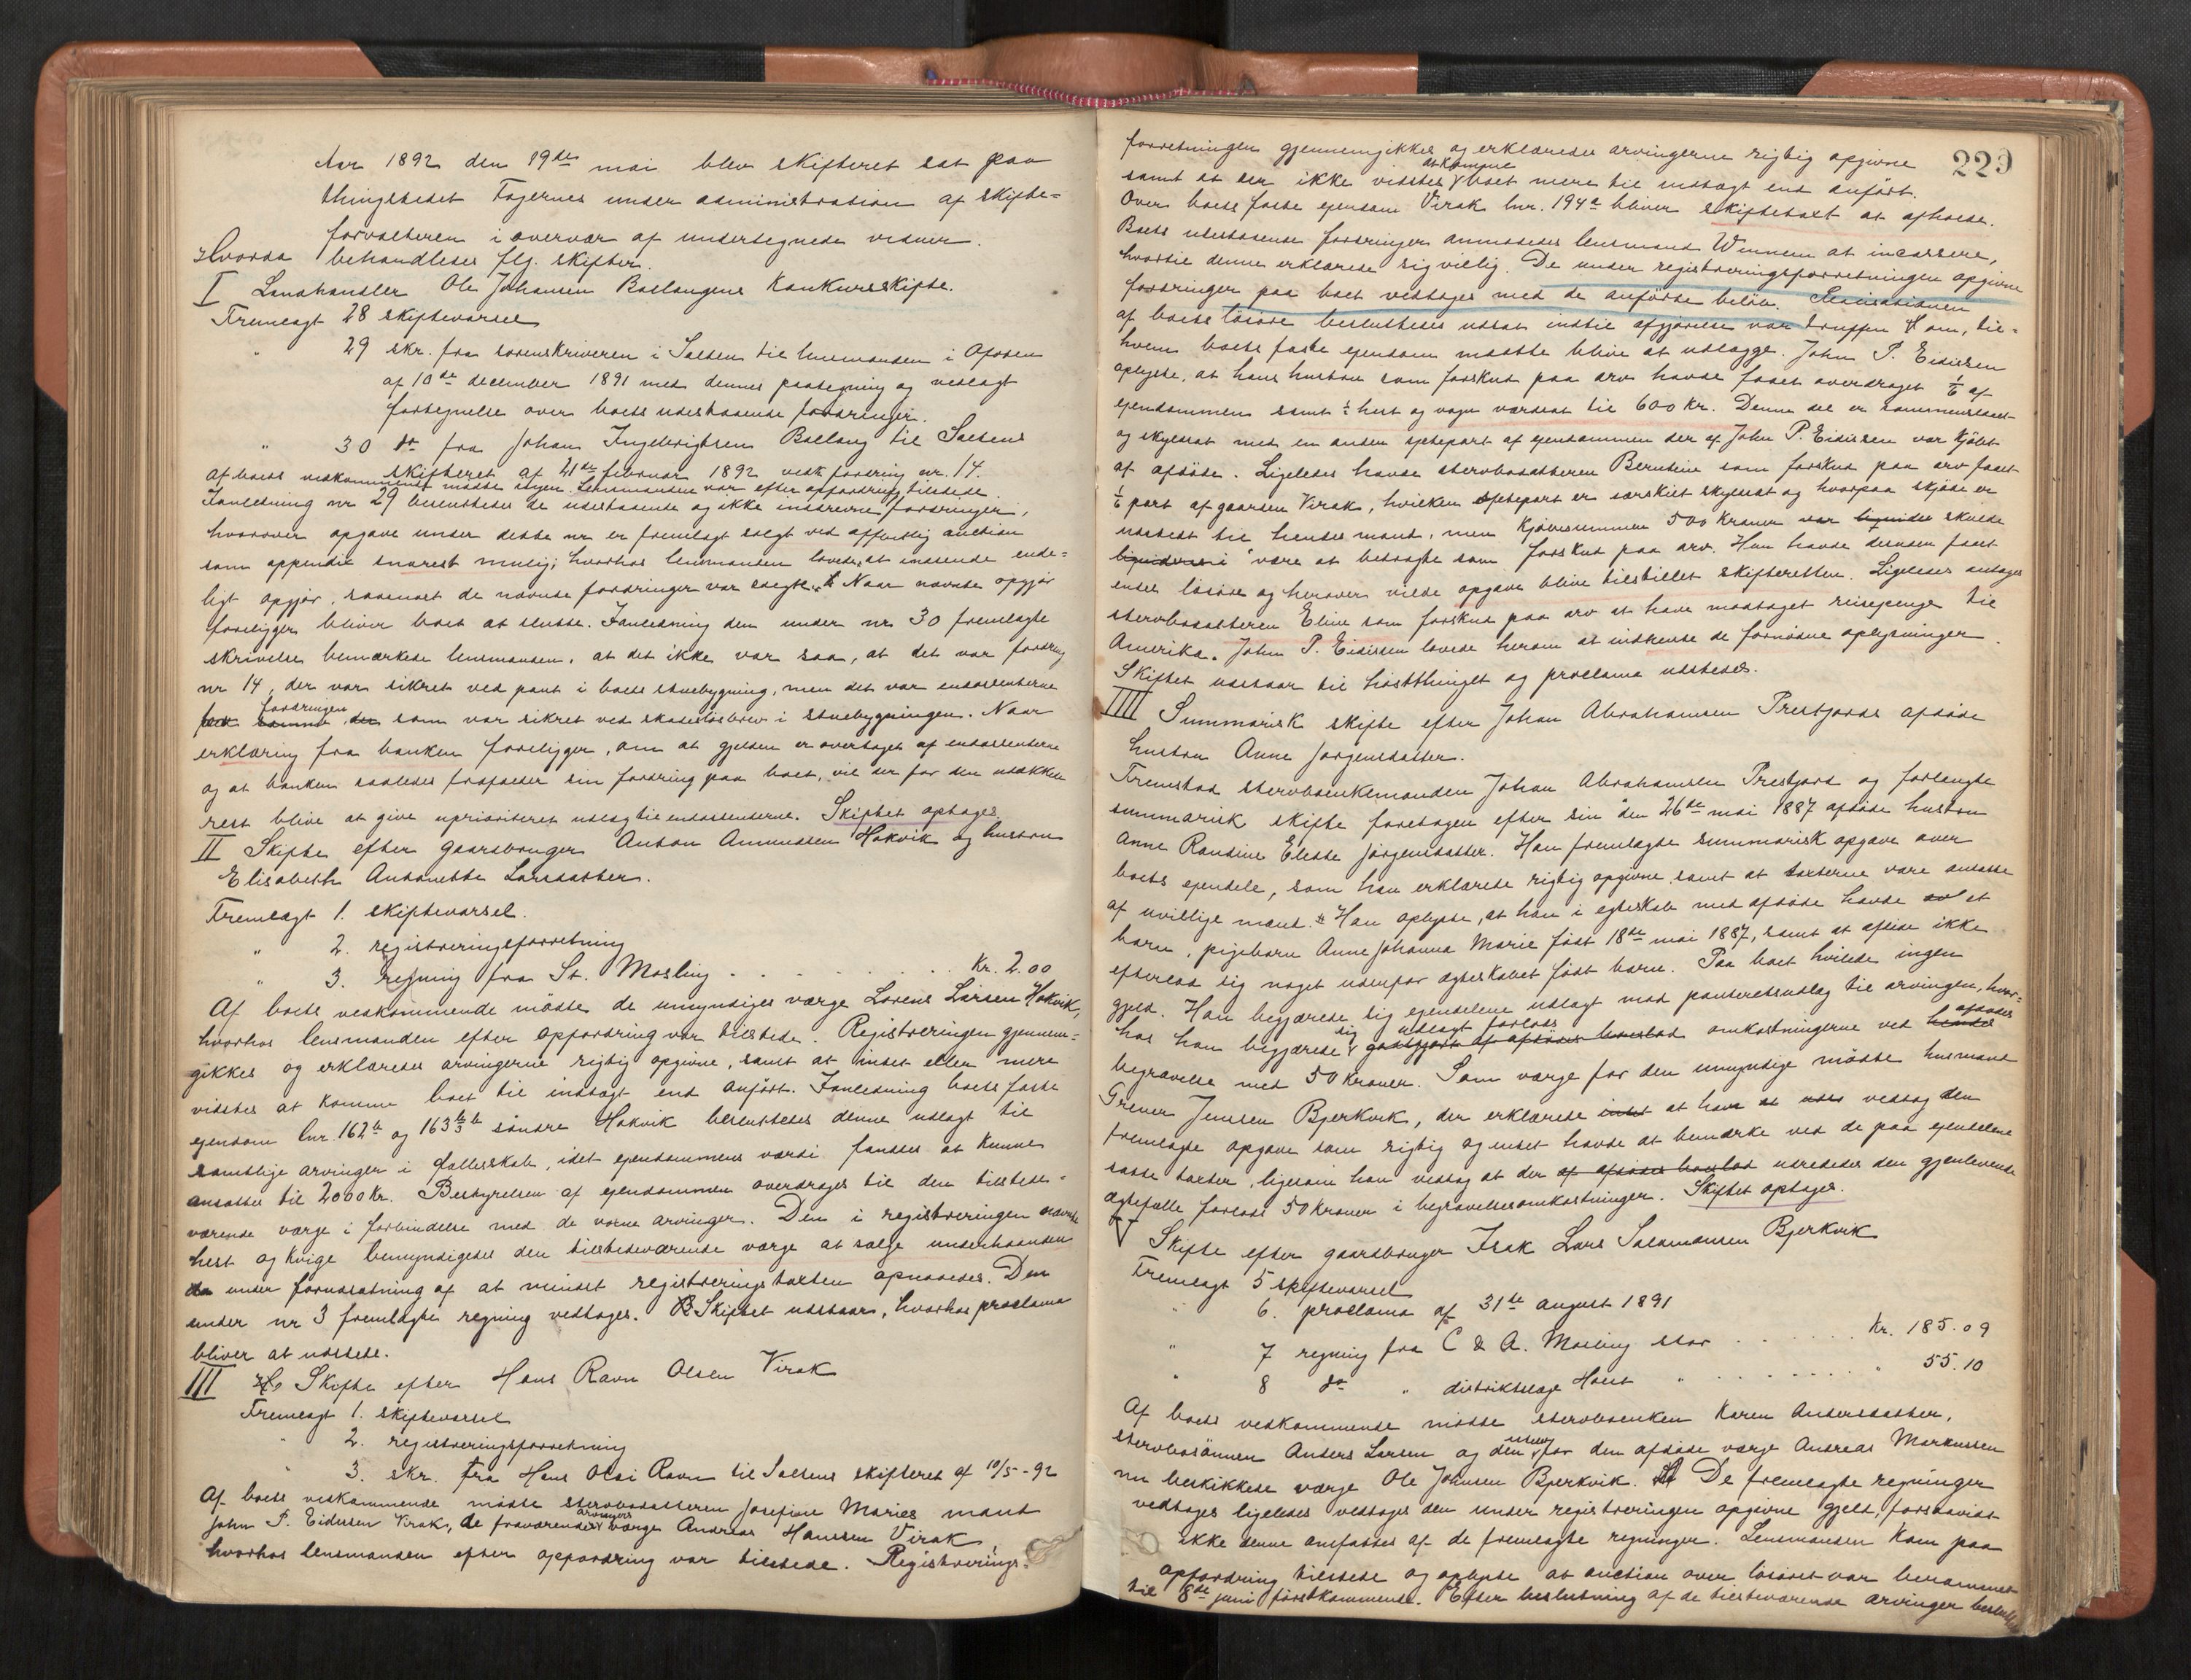 Aar 1892 den 19de mai blev skifteret sat paa
thingstedet Fagernes under administration af skifte-
forvalteren i overvær af undertegnede vidner.
Hvorda behandledes flg. skifter.
I Landhandler Ole Johansen Ballangens Konkursskifte.
Fremlagt 28 skiftevarsel
" 29 skr. fra sorenskriveren i Salten til lensmanden i Ofoten
af 10de december 1891 med dennes paategning og vedlagt
fortegnelse over boets udestaaende fordringer.
" 30 do fra Johan Ingebrigtsen Ballang til Saltens
skifteret af 21de februar 1892 vedk. fordring nr. 14.
Af boets vedkommende mødte ingen. Lensmanden var efter opfordring tilstede.
I anledning nr 29 besluttedes de udestaaende og ikke inddrevne fordringer,
hvorover opgave under dette nr er fremlagt solgt ved offentlig auction
som appendix snarest mulig; hvorhos lensmanden lovede at indsende ende-
ligt opgjør, saasnart de nævnte fordringer var solgte. Naar nævnte opgjør
foreligger bliver boet at slutte. I anledning den under nr 30 fremlagte
skrivelse bemærkede lensmanden, at det ikke var saa, at det var fordring
nr 14, der var sikret ved pant i boets stuebygning, men det var endossenterne
fordringen som var sikret ved skadesløsbrev i stuebygningen. Naar
erklæring fra banken foreligger, om at gjelden er overtaget af endossenterne
og at banken saaledes frafalder sin fordring paa boet, vil der for den udækkede
rest blive at give uprioriteret udlæg til endossenterne. Skiftet optages.
II Skifte efter gaardbruger Anton Amundsen Haakvik og hustru
Elisabeth Antonette Larsdatter.
Fremlagt 1. skiftevarsel.
" 2. registreringsforretning
" 3. regning fra St. Mosling . . . . . . Kr. 2.00
Af boets vedkommende mødte de umyndiges værge Lorens Larsen Hakvik,
hvorhos lensmanden efter opfordring var tilstede. Registreringen gjennem-
gikkes og erklæredes arvingerne rigtig opgivne, samt at intet eller mere
vidstes at komme boet til indtægt end anført. I anledning boets faste
eiendom lnr. 162 og 163 søndre Hakvik besluttedes denne udlagt til
samtlige arvinger i fælleskab, idet eiendommens værdi fandtes at kunne
ansættes til 2000 Kr. Bestyrelsen af eiendommen overdrages til den tilstede-
værende værge i forbindelse med de voxne arvinger. Den i registreringen nævnte
hest og kvige bemyndigedes den tilstedeværende værge at sælge underhaanden
under forudsætning af at mindst registreringstaxten opnaaedes. Den
under nr 3 fremlagte regning vedtages. Skiftet udstaar, hvorhos proclama
bliver at udstede.
III Skifte efter Hans Ravn Olsen Virak
Fremlagt 1. skiftevarsel
" 2. registreringsforretning
" 3. skr. fra Hans Olai Ravn til Saltens skifteret af 10/5-92
Af boets vedkommende mødte stervbodatteren Josefine Maries mand
John P. Eidissen Virak, de fraværende arvingers værge Andreas Hansen Virak,
hvorhos lensmanden efter opfordring var tilstede. Registrerings-
229
forretningen gjennemgikkes og erklæredes arvingerne rigtig opgivne
samt at der ikke vidstes at komme boet mere til indtægt end anført.
Over boets faste eiendom Virak lnr. 194a bliver skiftetaxt at afholde.
Boets udestaaende fordringer anmodedes lensmand Wennem at incassere,
hvortil denne erklærede sig villig. De under registreringsforretningen opgivne
fordringer paa boet vedtages med de anførte beløb. Licitationen
af boets løsøre besluttedes udsat indtil afgjørelse var truffen om, til-
hvem boets faste eiendom maatte blive at udlægge. John P. Eidissen
oplyste, at hans hustru som forskud paa arv havde faaet overdraget 1/6 af
eiendommen samt hest og vogn værdsat til 600 Kr. Denne del er sammenslaaet
og skyldsat med en anden sjettepart af eiendommen der af John P. Eidissen var kjøbt
af afdøde. Ligeledes havde stervbodatteren Berntine som forskud paa arv faaet
1/6 part af gaarden Virak, hvilken sjettepart er særskilt skyldsat og hvorpaa skjøde er
udstedt til hendes mand, men kjøbesummen 500 kroner skulde
være at betragte som forskud paa arv. Hun havde desuden faaet
endel løsøre og herover vilde opgave blive tilstillet skifteretten. Ligeledes antages
stervbodatteren Eline som forskud paa arv at have modtaget reisepenge til
Amerika. John P. Eidissen lovede herom at indhente de fornødne oplysninger.
Skiftet udstaar til høstthinget og proclama udstedes.
IIII Summarisk skifte efter Johan Abrahamsen Prestjords afdøde
hustru Anne Jørgensdatter.
Fremstod stervboenkemanden Johan Abrahamsen Prestjord og forlangte
summarisk skifte foretagen efter sin den 26de mai 1887 afdøde hustru
Anne Randine Elette Jørgensdatter. Han fremlagte summarisk opgave over
boets eiendele, som han erklærede rigtig opgivne samt at taxterne vare ansatte
af uvillige mænd. Han oplyste, at han i egteskab med afdøde havde et
barn, pigebarn Anne Johanna Marie født 18de mai 1887, samt at afdøde ikke
efterlod sig noget udenfor ægteskabet født barn. Paa boet hvilede ingen
gjeld. Han begjærede sig eiendelene udlagt mod panteretsudlæg til arvingen, hvor-
hos han begjærede sig udlagt forlods omkostningerne ved afdødes
begravelse med 50 Kroner. Som værge for den umyndige mødte husmand
Grener Jensen Bjerkvik, der erklærede at han vedtog den
fremlagte opgave som rigtig og intet havde at bemærke ved de paa eiendelene
satte taxter, ligesom han vedtog at der udrededes den gjenlevende
ægtefælle forlods 50 Kroner i begravelsesomkostninger. Skiftet optages.
V Skifte efter gaardbruger Isak Lars Salamonsen Bjerkvik
Fremlagt 5 skiftevarsel
" 6. proclama af 31te august 1891
" 7 regning fra C & A. Mosling stor . . . . Kr. 185.09
" 8 do " distriktslæge Holst " . . . . " 55.10
Af boets vedkommende mødte stervboenken Karen Andersdatter,
stervbosønnen Anders Larsen og den for den afdøde værge Andreas Markussen
nu beskikkede værge Ole Johnsen Bjerkvik. De fremlagte regninger
vedtages ligeledes vedtages den under registreringen opgivne gjeld, forsaavidt
ikke denne omfattes af de fremlagte regninger. Lensmanden kom paa
opfordring tilstede og oplyste at auction over løsøret var berammet
til 8de juni førstkommende. Efter beslutning af de tilstedeværende arvinger